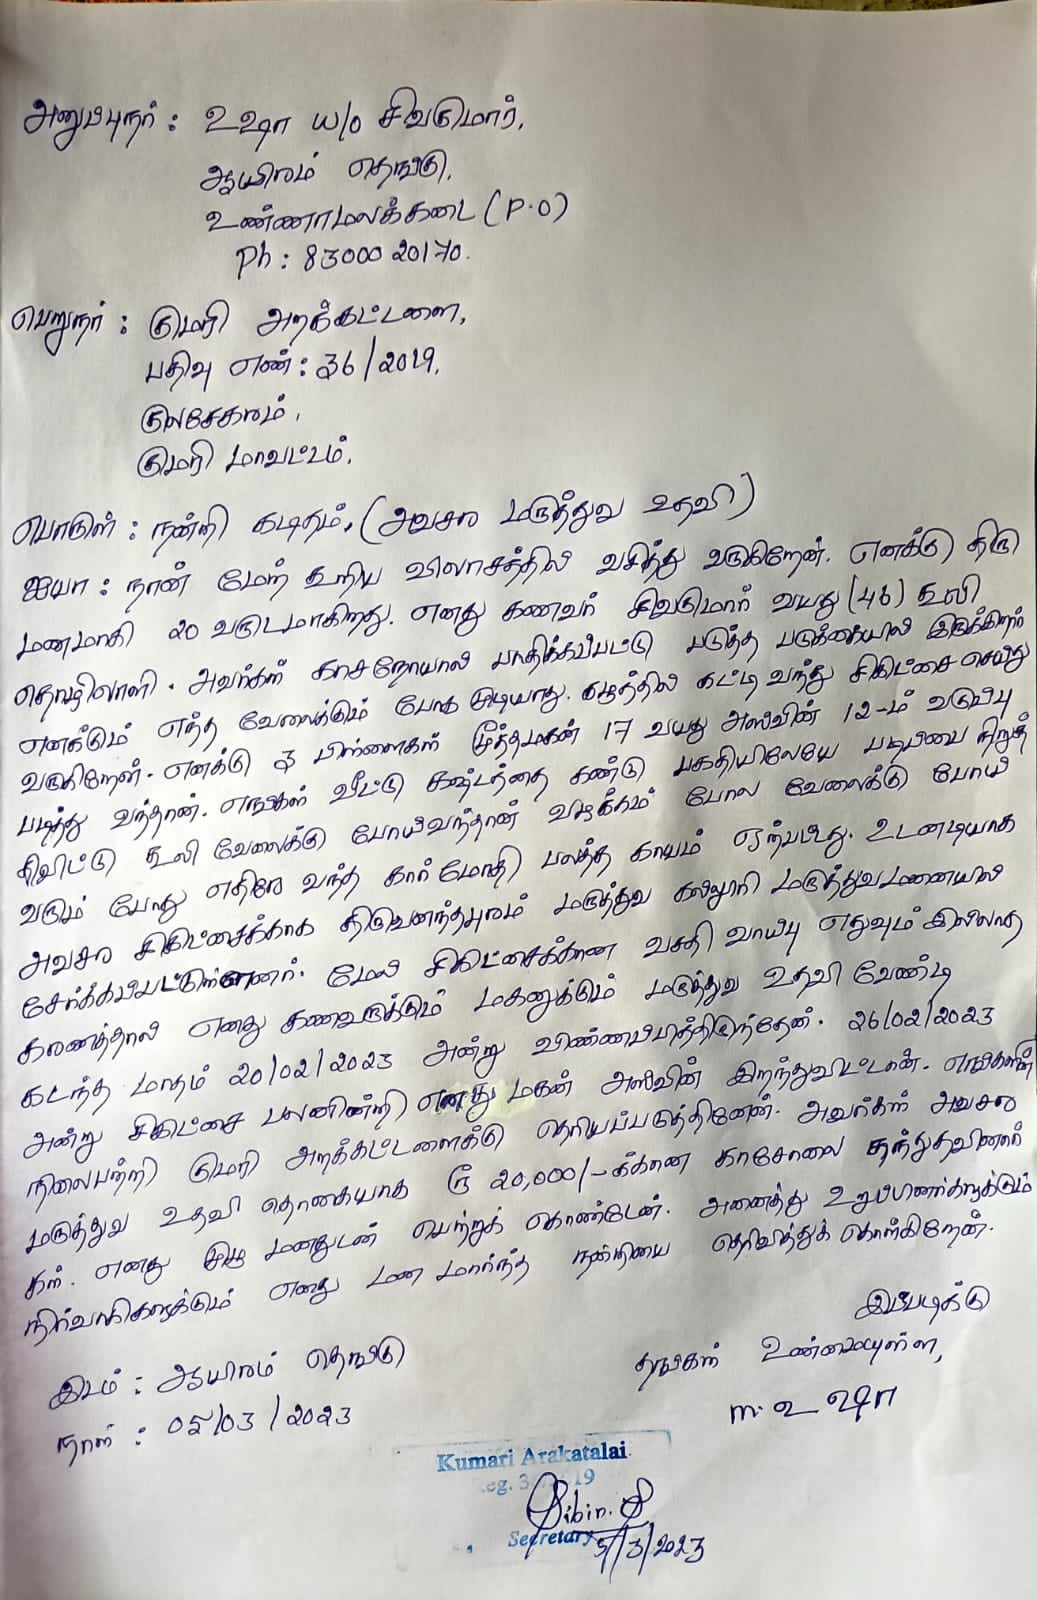 அனுப்புநர் : உஷா W/o சிவகுமார்,
ஆயிரம் தெங்கு,
உண்ணாமலக்கடை (P.O)
Ph : 83000 20170.
பெறுநர் : குமரி அறக்கட்டளை,
பதிவு எண் : 36/2019,
குலசேகரம்,
குமரி மாவட்டம்.
பொருள் : நன்றி கடிதம், (அவசர மருத்துவ உதவி)
ஐயா : நான் மேற் கூறிய விலாசத்தில் வசித்து வருகிறேன். எனக்கு திரு
மணமாகி 20 வருடமாகிறது. எனது கணவர் சிவகுமார் வயது (46) கூலி
தொழிலாளி. அவர்கள் காசநோயால் பாதிக்கப்பட்டு படுத்த படுக்கையால் இருக்கிறார்
எனக்கும் எந்த வேலைக்கும் போக முடியாது. கழுத்தில் கட்டி வந்து சிகிட்சை செய்து
வருகிறேன். எனக்கு 3 பிள்ளைகள் மூத்தமகன் 17 வயது அஸ்வின் 12-ம் வகுப்பு
படித்து வந்தான். எங்கள் வீட்டு கஷ்டத்தை கண்டு பகதியிலேயே படிப்பை நிறுத்
திவிட்டு கூலி வேலைக்கு போய்வந்தான் வழக்கம் போல வேலைக்கு போய்
வரும் போது எதிரே வந்த கார் மோதி பலத்த காயம் ஏற்பட்டது. உடனடியாக
அவசர சிகிட்சைக்காக திருவனந்தபுரம் மருத்துவ கல்லூரி மருத்துவமனையில்
சேர்க்கப்பட்டுள்ளனர். மேல் சிகிட்சைக்கான வசதி வாய்பு எதுவும் இல்லாத
காரணத்தால் எனது கணவருக்கும் மகனுக்கும் மருத்துவ உதவி வேண்டி
கடந்த மாதம் 20/02/2023 அன்று விண்ணப்பித்திருந்தேன். 26/02/2023
அன்று சிகிட்சை பலனின்றி எனது மகன் அஸ்வின் இறந்துவிட்டான். எங்களின்
நிலைபற்றி குமரி அறக்கட்டளைக்கு தெரியப்படுத்தினேன். அவர்கள் அவசர
மருத்துவ உதவி தொகையாக ரூ 20,000/-க்கான காசோலை தந்துதவினார்
கள். எனது முழு மனதுடன் பெற்றுக் கொண்டேன். அனைத்து உறுப்பினர்களுக்கும்
நிர்வாகிகளுக்கும் எனது மனமார்ந்த நன்றியை தெரிவித்துக் கொள்கிறேன்.
இப்படிக்கு
இடம் : ஆயிரம் தெங்கு
தங்கள் உண்மையுள்ள,
நாள் : 05/03/2023
m. உஷா
Kumari Arakatalai
Sibin. S
Secretary
5/3/2023